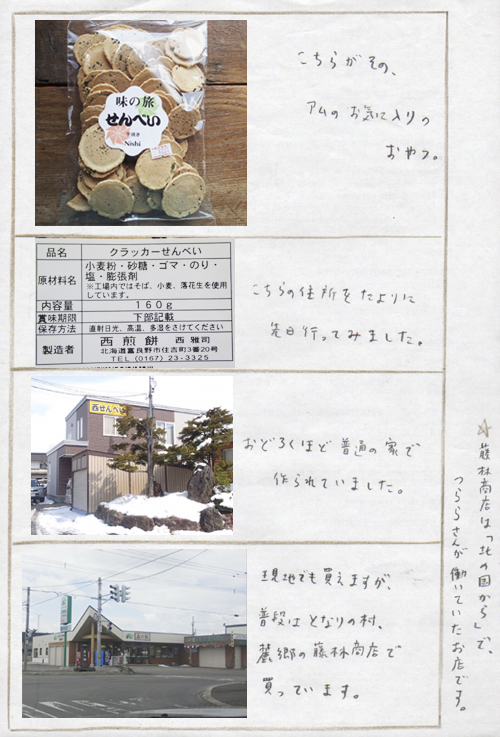 味の旅
せんべい
手焼き
Nishi
こちらがその、
アムのお気に入りの
おやつ。
品名 クラッカーせんべい
原材料名 小麦粉・砂糖・ゴマ・のり・
塩・膨張剤
※工場内ではそば、小麦、落花生を使用
しています。
内容量 160g
賞味期限 下部記載
保存方法 直射日光、高温、多湿をさけてください
製造者 西煎餅 西 雅司
北海道富良野市住吉町3番20号
TEL (0167) 23-3325
こちらの住所をたよりに
先日行ってみました。
西せんべい
おどろくほど普通の家で
作られていました。
現地でも買えますが、
普段はとなりの村、
麓郷の藤林商店で
買っています。
☆藤林商店は「北の国から」で、
つららさんが働いていたお店です。